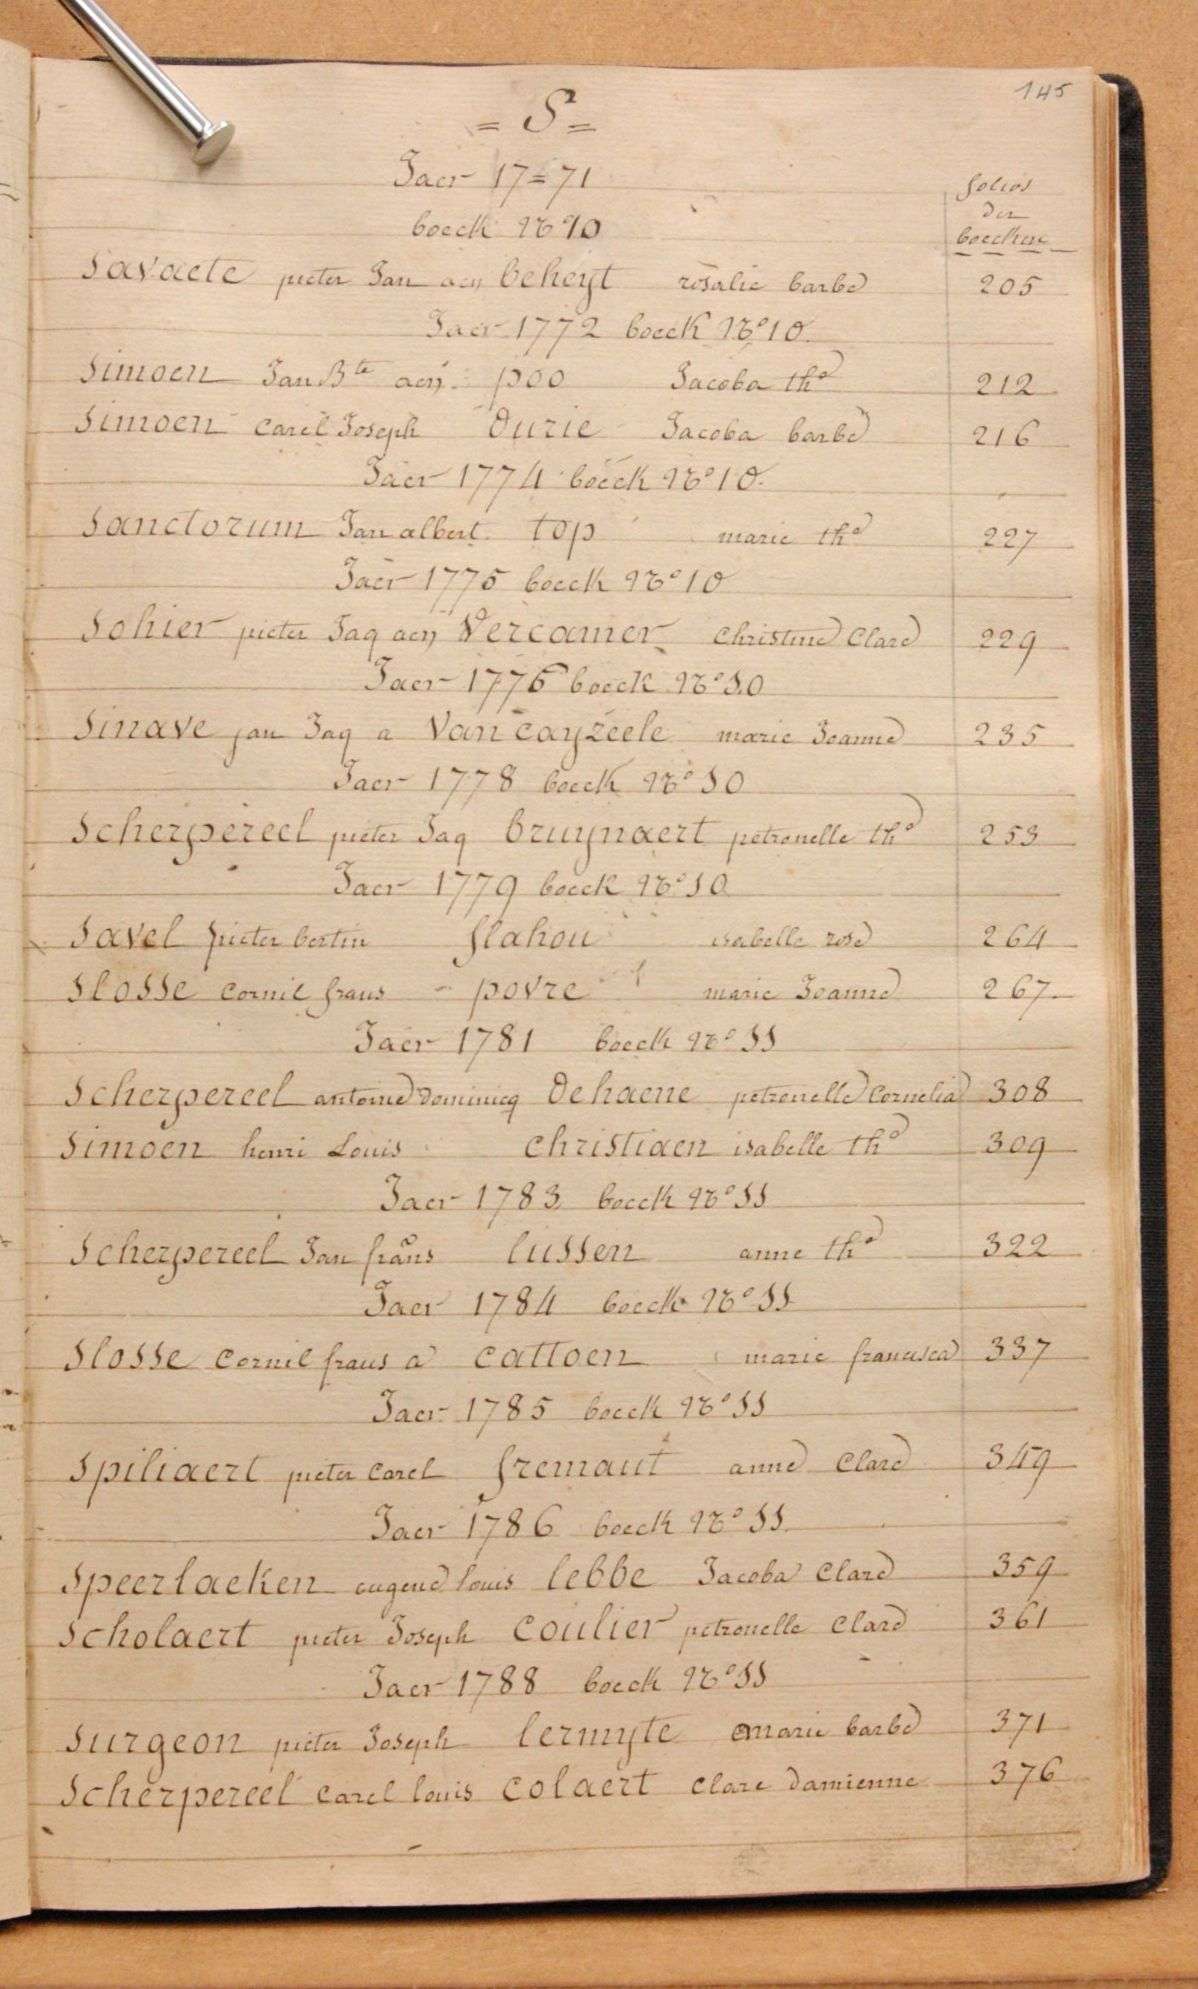 145
= S =
Jaer 17=71
folios
der
boecken
boeck N° 10
Savaete pieter Jan aen beheyt rosalie barbe 205
Jaer 1772 boeck N° 10
Simoen Jan Bte aen poo Jacoba the 212
Simoen Carel Joseph Durie Jacoba barbe 216
Jaer 1774 boeck N° 10.
Sanctorum Jan albert top marie the 227
Jaer 1775 boeck N° 10
Sohier pieter Jaq aen Vercamer Christine Clare 229
Jaer 1776 boeck N° 10
Sinave jan Jaq a Van Cayzeele marie Joanne 235
Jaer 1778 boeck N° 10
Scherpereel pieter Jaq bruynaert petronelle the 253
Jaer 1779 boeck N° 10
Savel pieter bertin flahou isabelle rose 264
Slosse Cornil frans povre marie Joanne 267.
Jaer 1781 boeck N° 11
Scherpereel antoine Dominicq Dehaene petronelle Cornelia 308
Simoen henri Louis Christiaen isabelle the 309
Jaer 1783 boeck N° 11
Scherpereel Jan frans lussen anne the 322
Jaer 1784 boeck N° 11
Slosse Cornil frans a Cattoen marie francisca 337
Jaer 1785 boeck N° 11
Spiliaert pieter Carel fremaut anne Clare 349
Jaer 1786 boeck N° 11
Speerlaeken eugene louis lebbe Jacoba Clare 359
Scholaert pieter Joseph Coulier petronelle Clare 361
Jaer 1788 boeck N° 11
Surgeon pieter Joseph lermyte marie barbe 371
Scherpereel Carel louis Colaert Clare Damienne 376